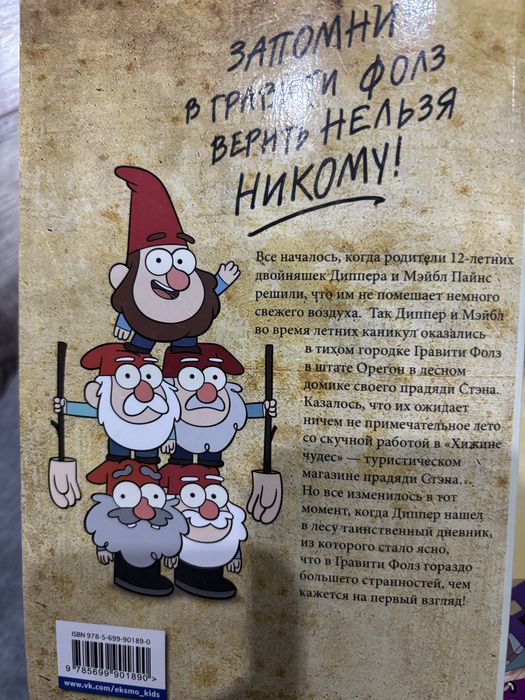 ЗАПОМНИ
В ГРАВИТИ ФОЛЗ
ВЕРИТЬ НЕЛЬЗЯ
НИКОМУ!
Все началось, когда родители 12-летних
двойняшек Диппера и Мэйбл Пайнс
решили, что им не помешает немного
свежего воздуха. Так Диппер и Мэйбл
во время летних каникул оказались
в тихом городке Гравити Фолз
в штате Орегон в лесном
домике своего прадяди Стэна.
Казалось, что их ожидает
ничем не примечательное лето
со скучной работой в «Хижине
чудес» — туристическом
магазине прадяди Стэна…
Но все изменилось в тот
момент, когда Диппер нашел
в лесу таинственный дневник,
из которого стало ясно,
что в Гравити Фолз гораздо
большего странностей, чем
кажется на первый взгляд!
ISBN 978-5-699-90189-0
9 785699 901890 >
www.vk.com/eksmo_kids